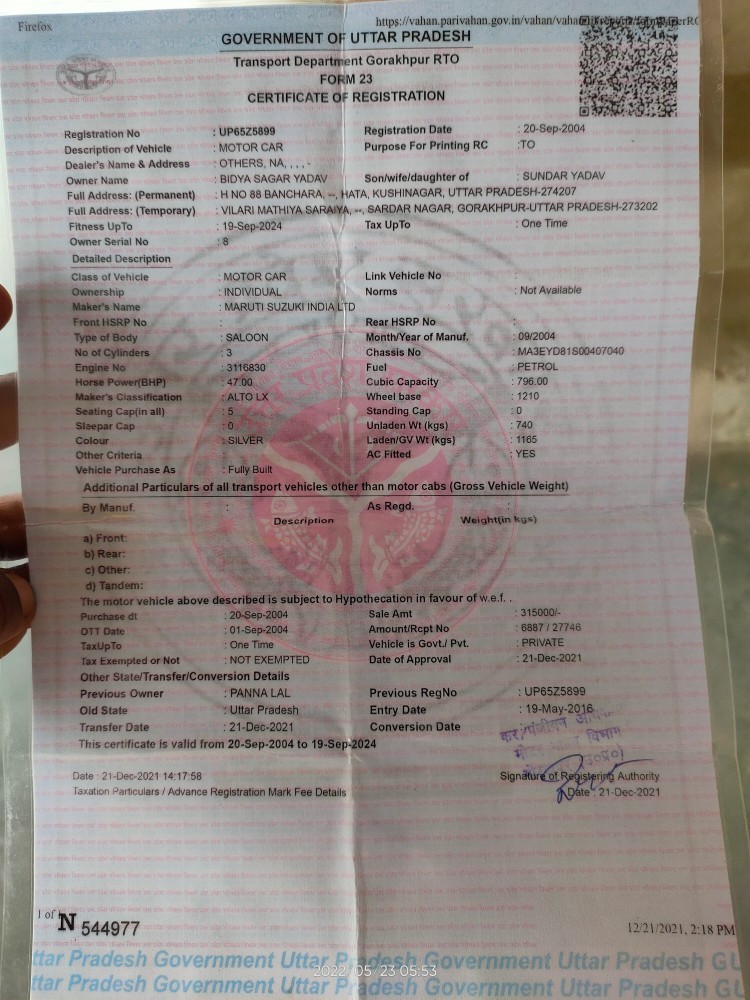 Firefox
https://vahan.parivahan.gov.in/vahan/vahan
GOVERNMENT OF UTTAR PRADESH
Transport Department Gorakhpur RTO
FORM 23
CERTIFICATE OF REGISTRATION
Registration No : UP65Z5899 Registration Date : 20-Sep-2004
Description of Vehicle : MOTOR CAR Purpose For Printing RC :TO
Dealer's Name & Address : OTHERS, NA, , , , -
Owner Name : BIDYA SAGAR YADAV Son/wife/daughter of : SUNDAR YADAV
Full Address: (Permanent) : H NO 88 BANCHARA, --, HATA, KUSHINAGAR, UTTAR PRADESH-274207
Full Address: (Temporary) : VILARI MATHIYA SARAIYA, --, SARDAR NAGAR, GORAKHPUR-UTTAR PRADESH-273202
Fitness UpTo : 19-Sep-2024 Tax UpTo : One Time
Owner Serial No : 8
Detailed Description
Class of Vehicle : MOTOR CAR Link Vehicle No :
Ownership : INDIVIDUAL Norms : Not Available
Maker's Name : MARUTI SUZUKI INDIA LTD
Front HSRP No : Rear HSRP No :
Type of Body : SALOON Month/Year of Manuf. : 09/2004
No of Cylinders : 3 Chassis No : MA3EYD81S00407040
Engine No : 3116830 Fuel : PETROL
Horse Power(BHP) : 47.00 Cubic Capacity : 796.00
Maker's Classification : ALTO LX Wheel base : 1210
Seating Cap(in all) : 5 Standing Cap : 0
Sleepar Cap : 0 Unladen Wt (kgs) : 740
Colour : SILVER Laden/GV Wt (kgs) : 1165
Other Criteria AC Fitted : YES
Vehicle Purchase As : Fully Built
Additional Particulars of all transport vehicles other than motor cabs (Gross Vehicle Weight)
By Manuf. : As Regd. :
Description Weight(in kgs)
a) Front:
b) Rear:
c) Other:
d) Tandem:
The motor vehicle above described is subject to Hypothecation in favour of w.e.f. .
Purchase dt : 20-Sep-2004 Sale Amt : 315000/-
OTT Date : 01-Sep-2004 Amount/Rcpt No : 6887 / 27746
TaxUpTo : One Time Vehicle is Govt./ Pvt. : PRIVATE
Tax Exempted or Not : NOT EXEMPTED Date of Approval : 21-Dec-2021
Other State/Transfer/Conversion Details
Previous Owner : PANNA LAL Previous RegNo : UP65Z5899
Old State : Uttar Pradesh Entry Date : 19-May-2016
Transfer Date : 21-Dec-2021 Conversion Date :
This certificate is valid from 20-Sep-2004 to 19-Sep-2024
Date : 21-Dec-2021 14:17:58 Signature of Registering Authority
Taxation Particulars / Advance Registration Mark Fee Details Date : 21-Dec-2021
1 of
N 544977
12/21/2021, 2:18 PM
ttar Pradesh Government Uttar Pradesh Government Uttar Pradesh GU
2022/05/23 05:53
ttar Pradesh Government Uttar Pradesh Government Uttar Pradesh GU